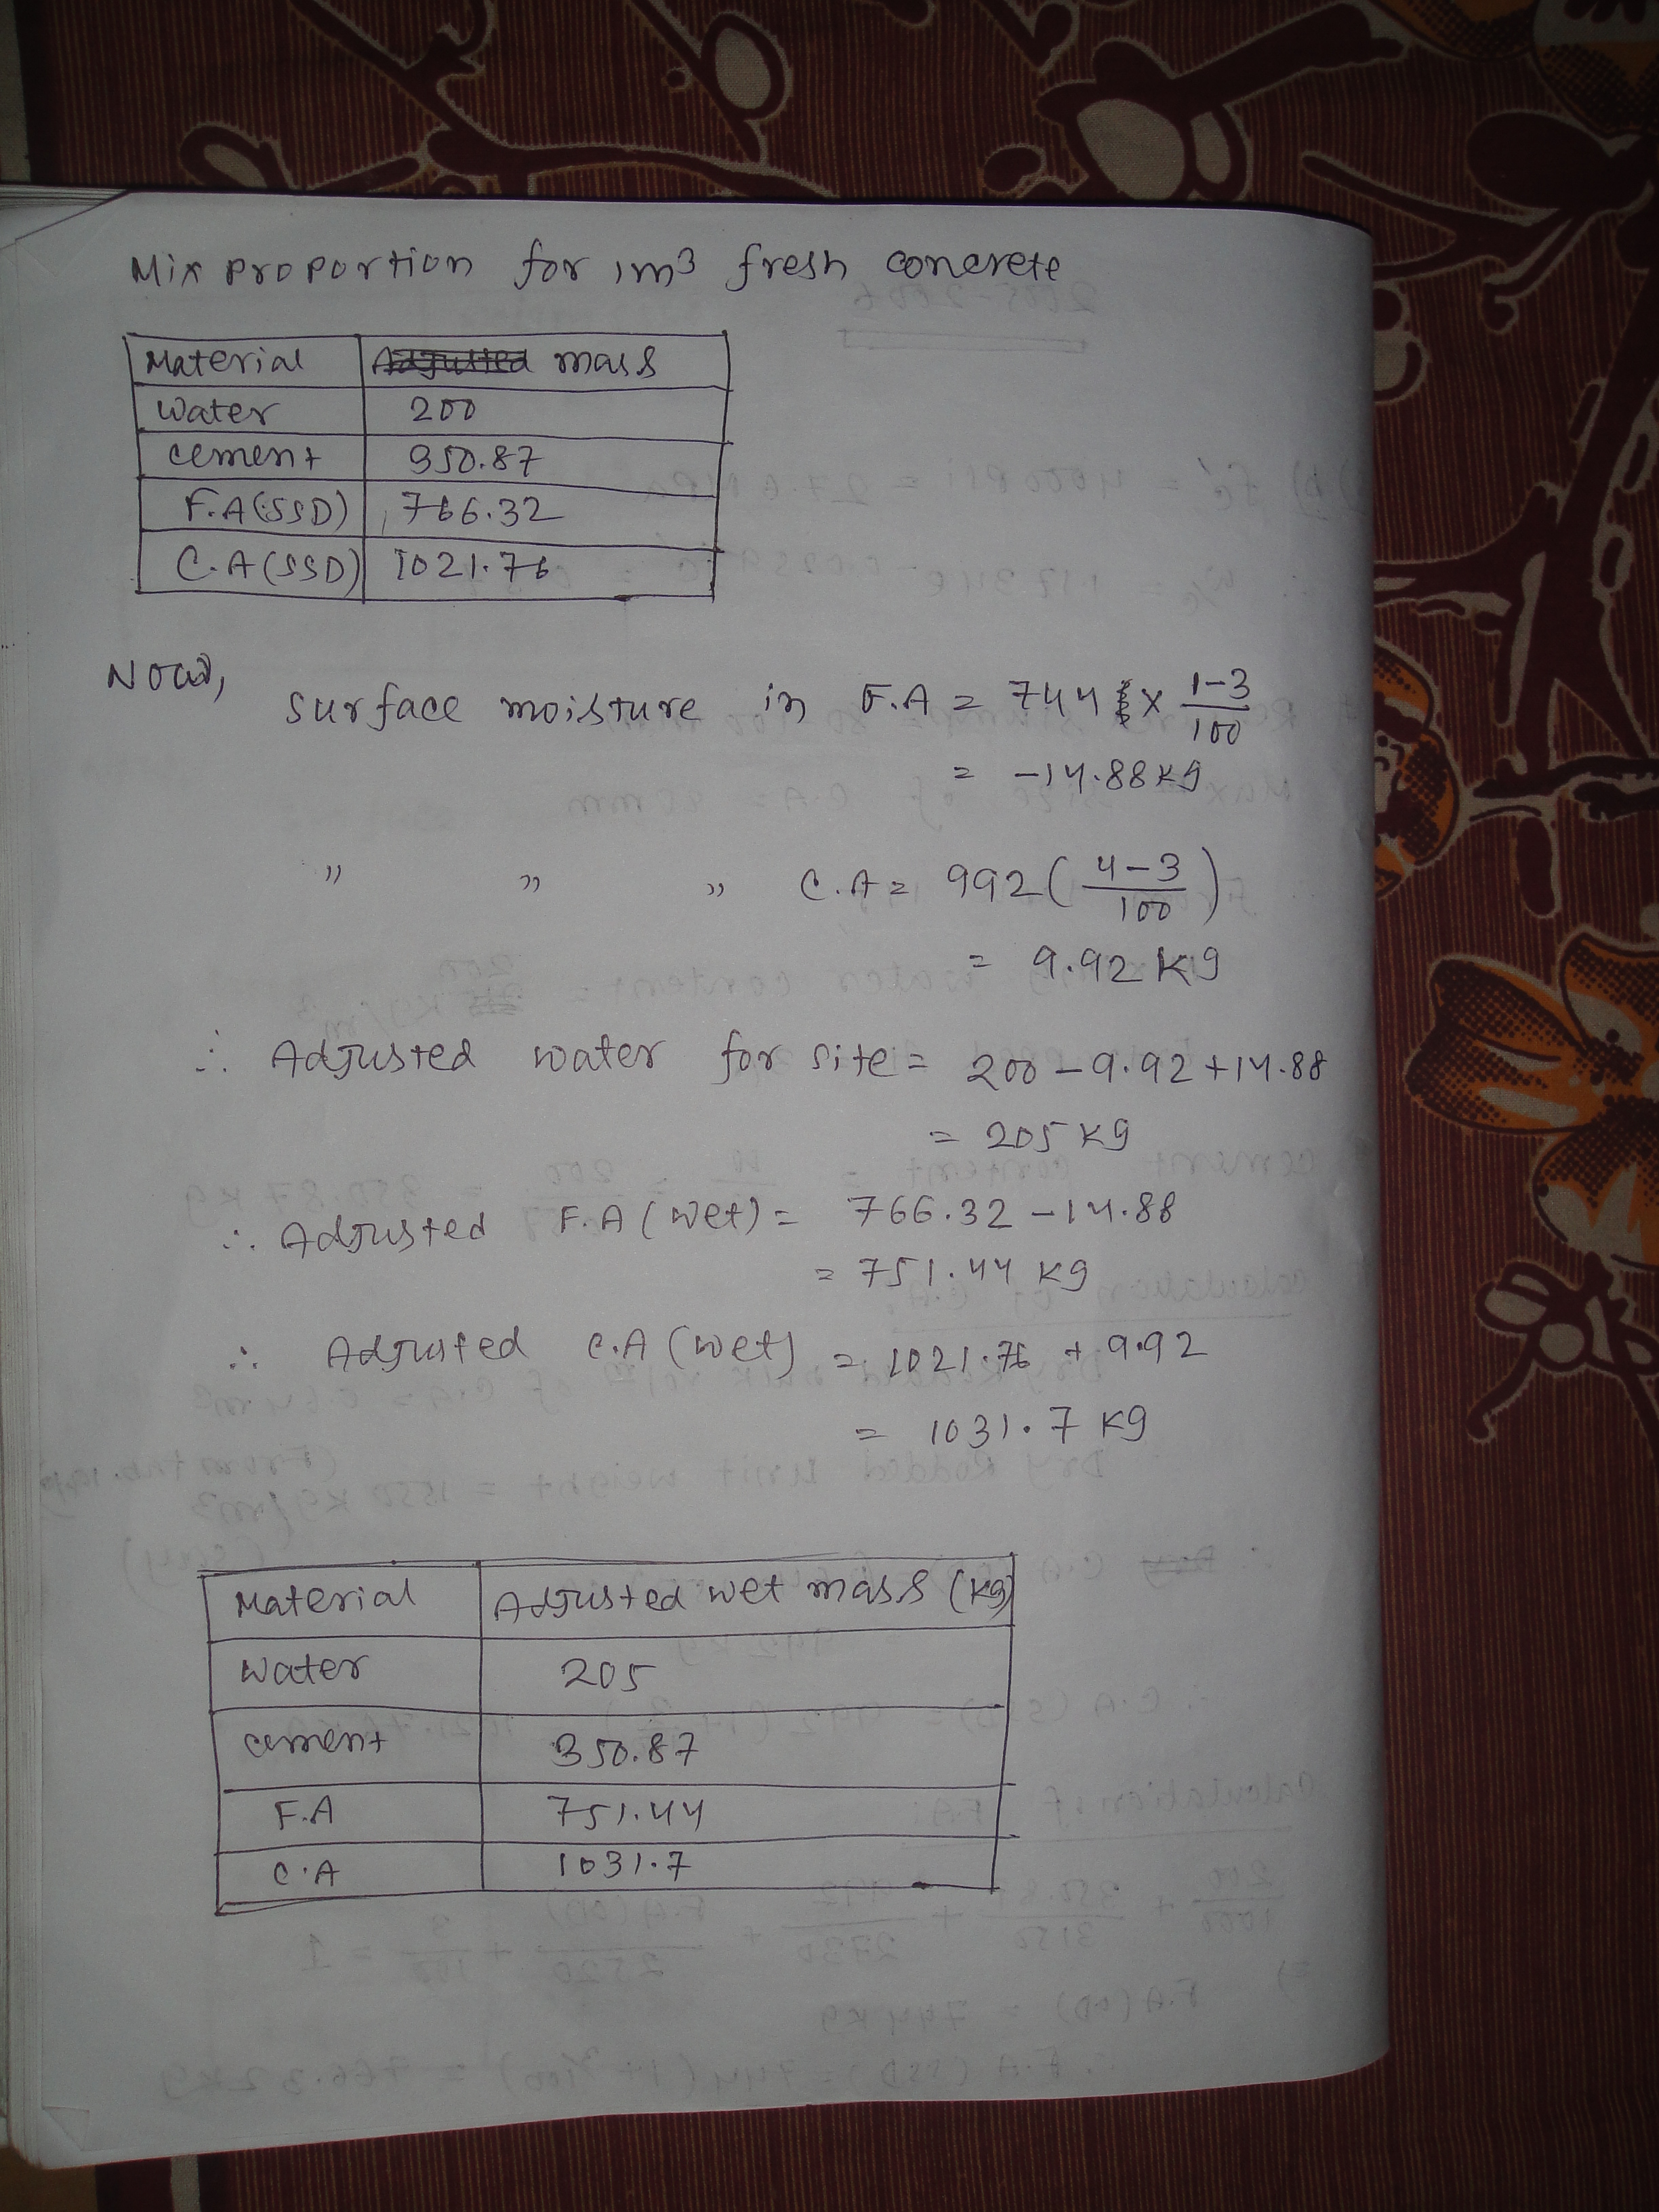 Mix proportion for 1m³ fresh concrete
Material | mass
Water | 200
cement | 350.87
F.A(SSD) | 766.32
C.A(SSD) | 1021.76
Now,
surface moisture in F.A = 744 × (1-3)/100
= -14.88 kg
" " " C.A = 992 ( (4-3)/100 )
= 9.92 kg
∴ Adjusted water for site = 200 - 9.92 + 14.88
= 205 kg
∴ Adjusted F.A (wet) = 766.32 - 14.88
= 751.44 kg
∴ Adjusted C.A (wet) = 1021.76 + 9.92
= 1031.7 kg
Material | Adjusted wet mass (kg)
Water | 205
cement | 350.87
F.A | 751.44
C.A | 1031.7